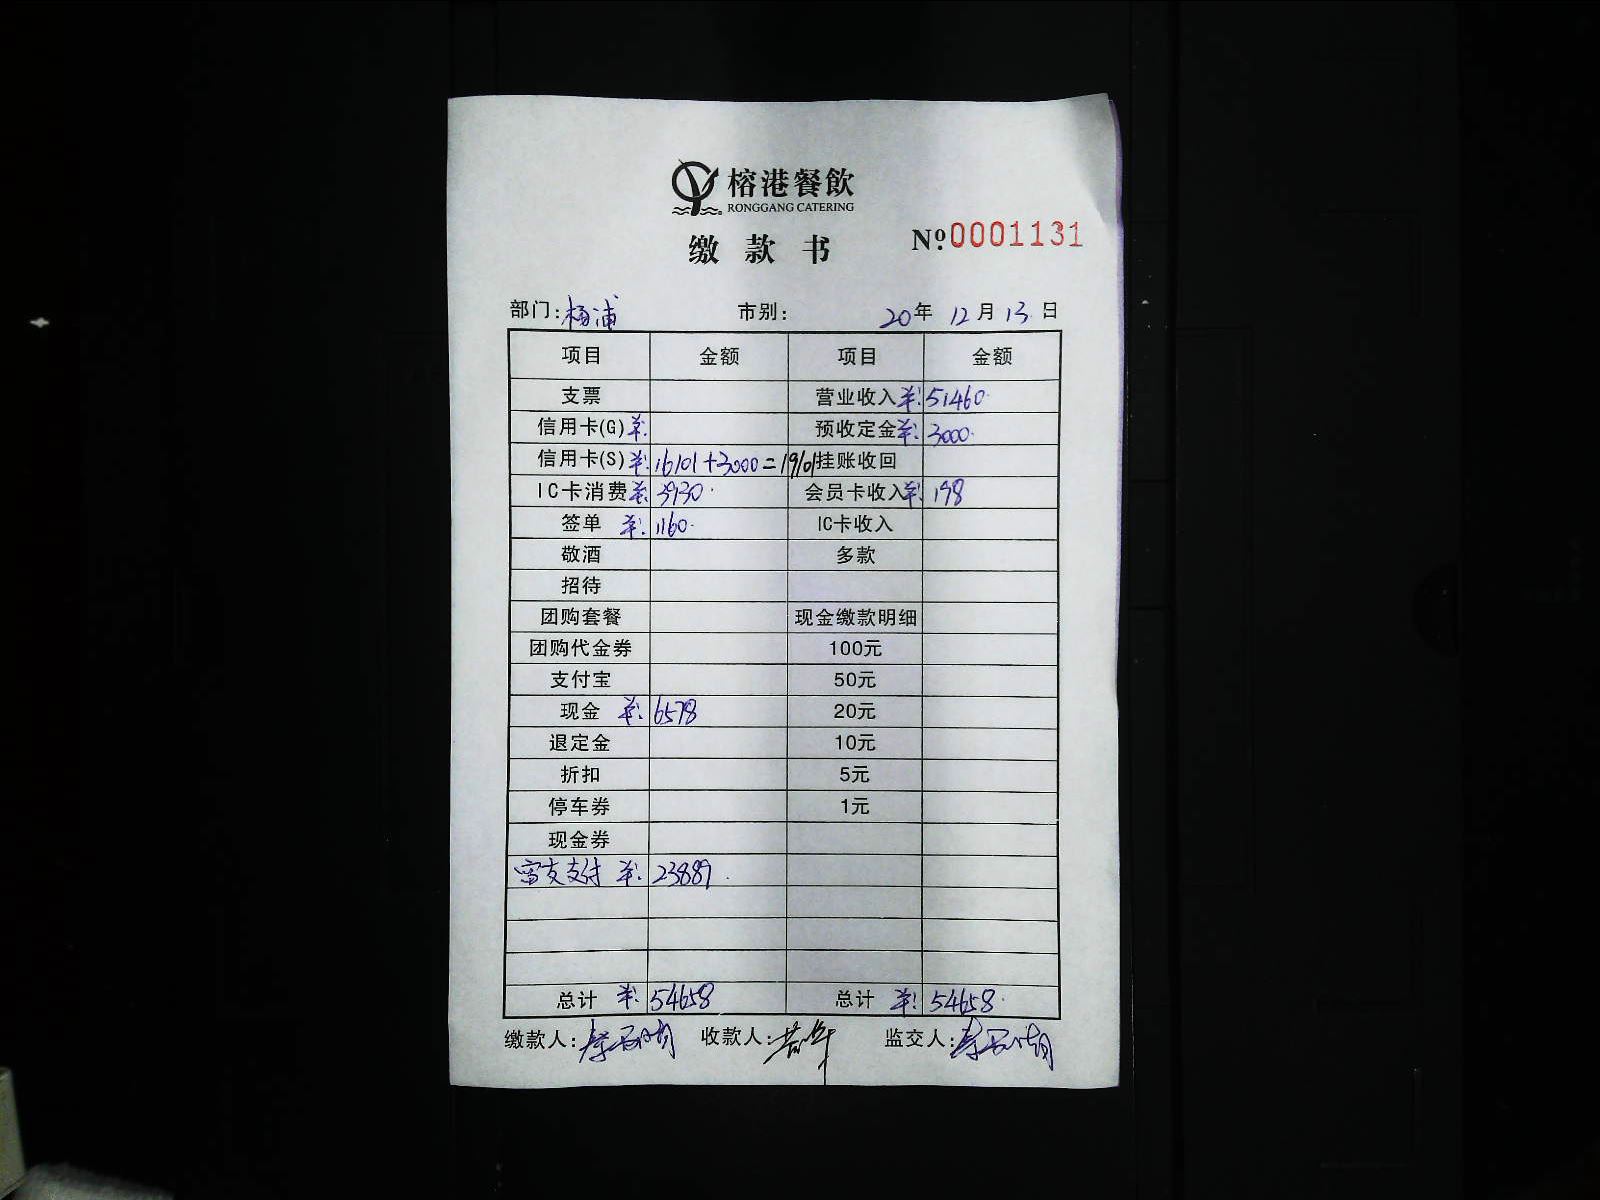 榕港餐飲
RONGGANG CATERING
缴款书
Nº:0001131
部门:杨浦 市别: 20年 12月 13日
项目 金额 项目 金额
支票 营业收入 ¥:51460.
信用卡(G) ¥: 预收定金 ¥:3000.
信用卡(S) ¥:16101+3000=19101 挂账收回
IC卡消费 ¥:3930. 会员卡收入 ¥:198
签单 ¥:1160. IC卡收入
敬酒 多款
招待
团购套餐 现金缴款明细
团购代金券 100元
支付宝 50元
现金 ¥:6578 20元
退定金 10元
折扣 5元
停车券 1元
现金券
支付 ¥:23889.
总计 ¥:54658 总计 ¥:54658.
缴款人: 收款人: 监交人: